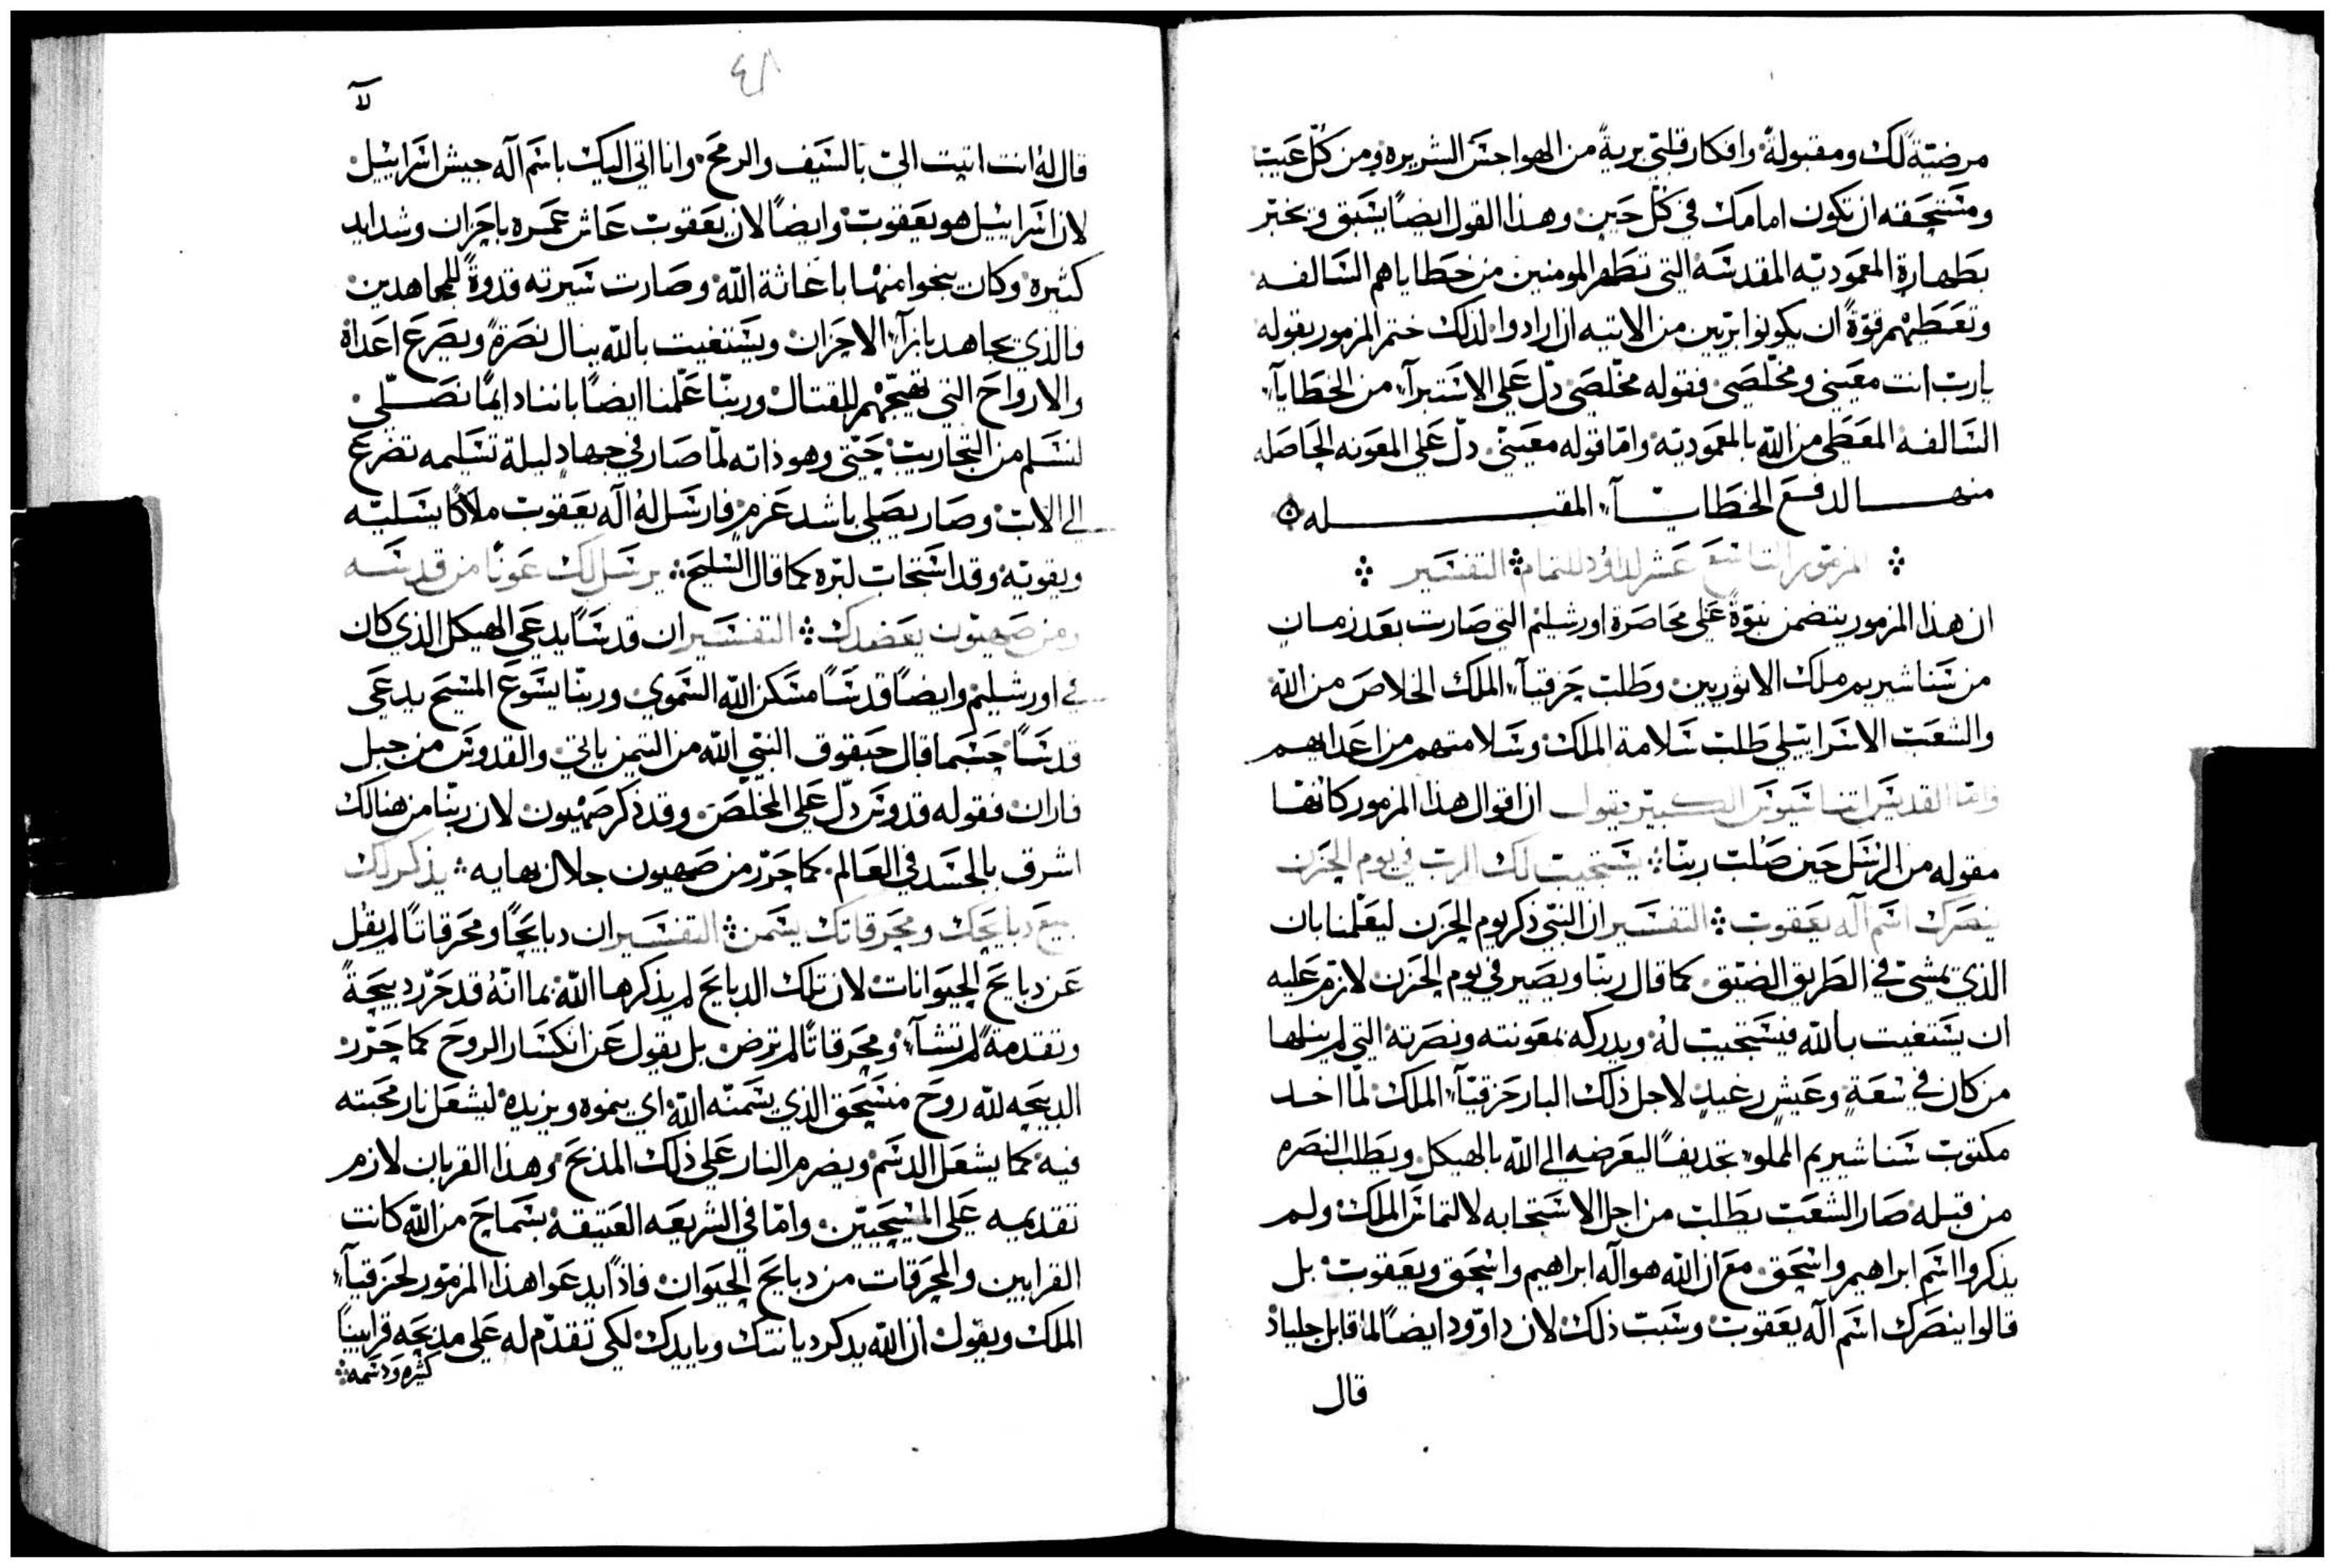 مرضيّةً لك ومقبولةً وافكار قلبي بريةً من الهواجس الشريره ومن كل عيب
ومستحقه ان تكون امامك في كل حين وهذا القول ايضاً يسبق ويخبر
بطهارة المعموديّه المقدسه التي تطهر المومنين من خطاياهم السالفه
وتعطيهم قوّةً ان يكونوا بريّين من الاتيه ان ارادوا لذلك ختم المزمور بقوله
يا رب انت معيني ومخلّصي فقوله مخلّصي دلّ على الاستبرآء من الخطايآء
السالفه المعطى من الله بالمعموديّه وامّا قوله معيني دلّ على المعونه الحاصله
منها لدفع الخطايآء المقبله
المزمور التاسع عشر لداوُد للتمام التفسير
ان هذا المزمور يتضمن نبوّةً على محاصرة اورشليم التي صارت بعد زمان
من سناشيريم ملك الاثوريين وطلب حزقيآء الملك الخلاص من الله
والشعب الاسراييلي طلب سلامة الملك وسلامتهم من اعدايهم
وامّا القديس اثناسيوس الكبير يقول ان اقوال هذا المزمور كانها
مقوله من الرسل حين صلب ربنّا يستجيب لك الرب في يوم الحزن
ينصرك اسم آله يعقوب التفسير ان النبي ذكر يوم الحزن ليعلّمنا بان
الذي يمشي في الطريق الضيّق كما قال ربنّا ويصير في يوم الحزن لازم عليه
ان يستغيت بالله فيستجيب لهُ ويدركه بمعونته ونصرته التي لم ينلها
من كان في سعةٍ وعيش رغيدٍ لاجل ذلك البار حزقيّآء الملك لمّا اخد
مكتوب سناشيريم المملوء تجديفاً ليعرضه الى الله بالهيكل ويطلب النصره
من قبله صار الشعب يطلب من اجل الاستجابه لالتماس الملك ولم
يذكروا اسم ابراهيم واسحق مع ان الله هو آله ابراهيم واسحق ويعقوب بل
قالوا ينصرك اسم آله يعقوب وسبب ذلك لان داوود ايضاً لما قابل جلياد
قال
لا
قال لهُ انت اتيت اليّ بالسيف والرمح وانا اتي اليك باسم آله جيش اسراييل
لان اسراييل هو يعقوب وايضاً لان يعقوب عاش عمره باحزان وشدايد
كثيره وكان ينجوا منها باغاثة الله وصارت سيرته قدوةً للمجاهدين
فالذي يجاهد بازآء الاحزان ويستغيت بالله ينال نصرةً ويصرع اعداهُ
والارواح التي تهيّجهم للقتال وربنّا علّمنا ايضاً باننا دايماً نصلّي
لنسلم من التجاريب حتى وهو ذاته لمّا صار في جهاد ليلة تسليمه تضرع
الى الاب وصار يصلي باشد عزمٍ فارسل لهُ آله يعقوب ملاكاً يسليّه
ويقويّه وقد استجاب لبره كما قال السليح يرسل لك عوناً من قدسه
ومن صهيون يعضدك التفسير ان قدساً يدعي الهيكل الذي كان
في اورشليم وايضاً قدساً مسكن الله السموي وربنّا يسوع المسيح يدعى
قدساً حسبما قال حبقوق النبي الله من التيمن ياتي والقدوس من جبل
فاران فقوله قدوس دلّ على المخلّص وقد ذكر صهيون لان ربنّا من هنالك
اشرق بالجسد في العالم كما حرّر من صهيون جلال بهايه يذكر لك
جميع دبايحك ومحرقاتك يسمن التفسير ان دبايحاً ومحرقاتاً لم يقُل
عن دبايح الحيوانات لان تلك الدبايح لم يذكرها الله بما انّهُ قد حرّر دبيحةً
وتقدمةً لم تشآء ومحرقاتاً لم ترض بل يقول عن انكسار الروح كما حَرّر
الدبيحه لله روح منسحق الذي يسمنّه الله اي ينموه ويزيده ليشعل نار محبته
فيه كما يشعل الدسم ويضرم النار على ذلك المذبح وهذا القربان لازم
تقديمه على المسيحيّين وامّا في الشريعه العتيقه بسماح من الله كانت
القرابين والمحرقات من دبايح الحيوان فاذاً يدعوا هذا المزمور لحزقيآء
الملك ويقول ان الله يدكر ديانتك وبايدك لكي تقدّم له على مدبحه قرابيناً
كثيره ودسمه